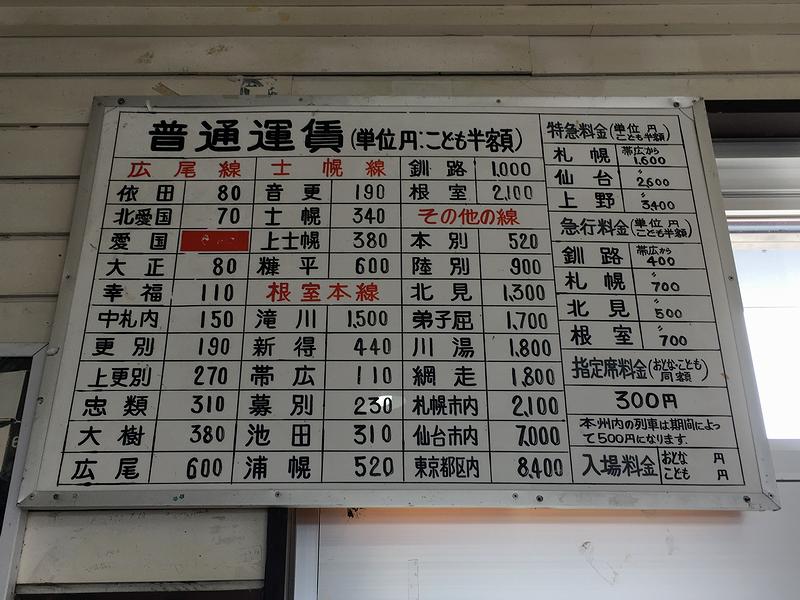 普通運賃(単位円:こども半額)
広尾線
依田 80
北愛国 70
愛国
大正 80
幸福 110
中札内 150
更別 190
上更別 270
忠類 310
大樹 380
広尾 600
士幌線
音更 190
士幌 340
上士幌 380
糠平 600
根室本線
滝川 1,500
新得 440
帯広 110
幕別 230
池田 310
浦幌 520
釧路 1,000
根室 2,100
その他の線
本別 520
陸別 900
北見 1,300
弟子屈 1,700
川湯 1,800
網走 1,800
札幌市内 2,100
仙台市内 7,000
東京都区内 8,400
特急料金(単位 円 こども半額)
札幌 帯広から 1,600
仙台 〃 2,600
上野 〃 3,400
急行料金(単位 円 こども半額)
釧路 帯広から 400
札幌 〃 700
北見 〃 500
根室 〃 700
指定席料金(おとな・こども 同額)
300円
本州内の列車は期間によっ
て500円になります.
入場料金 おとな 円
こども 円